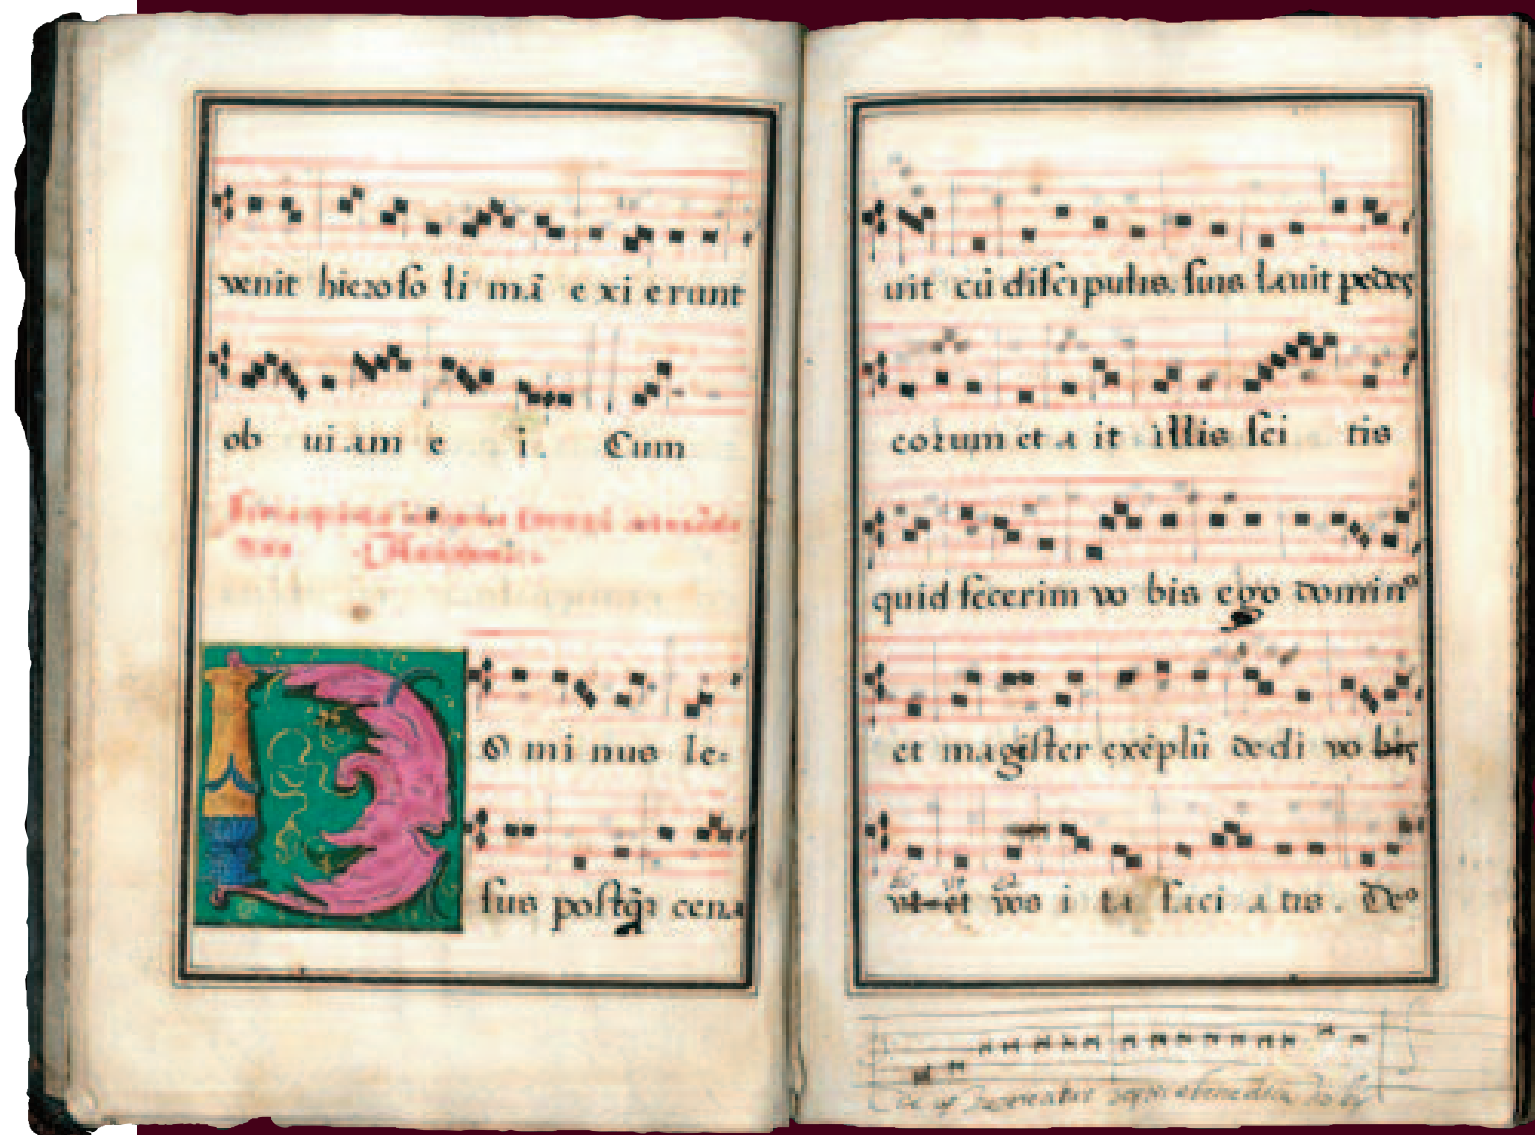 venit hieroso li mā e xi erunt
ob ui am e i. Cum
O mi nus Ie-
sus postq̄z cena
uit cū discipulis. suis lauit pedes
eorum et a it illis sci tis
quid fecerim vo bis ego domin⁹
et magister exēplū dedi vo bis
vt et vos i ta faci a tis. De⁹